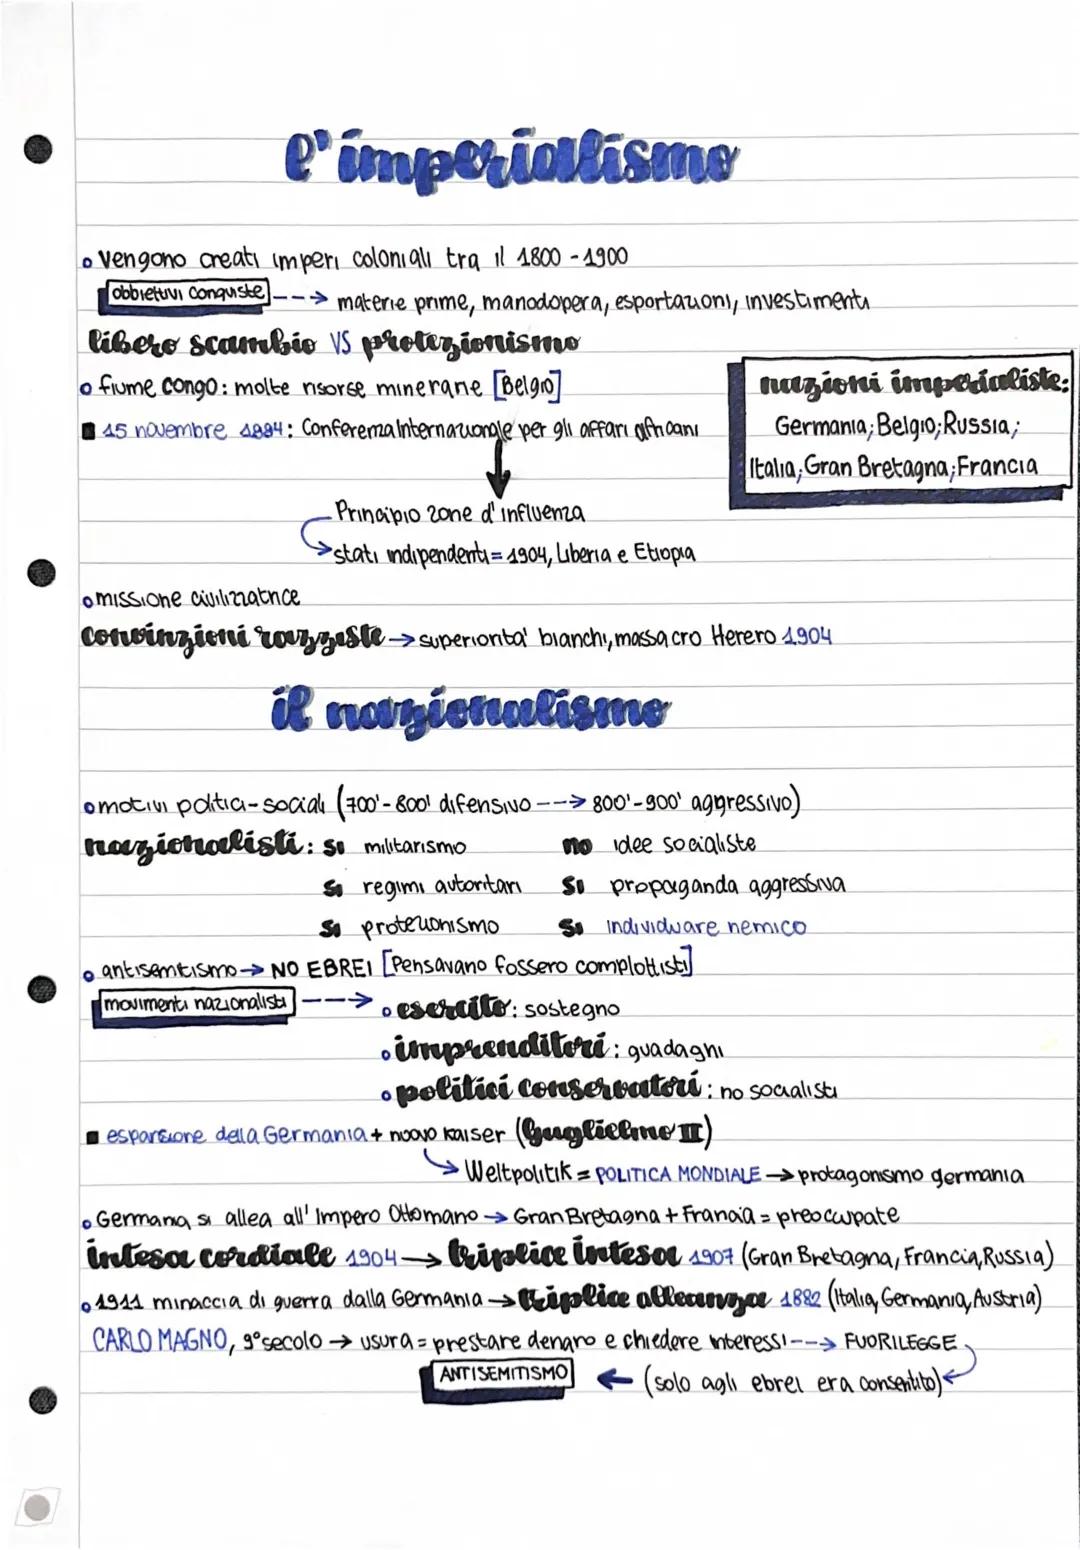 l'imperialismo
o Vengono creati imperi coloniali tra il 1800 - 1900
obbiettivi conquiste ---> materie prime, manodopera, esportazioni, investimenti
libero scambio VS protezionismo
o fiume congo: molte risorse minerarie [Belgio]
nazioni imperialiste:
Germania; Belgio; Russia;
Italia; Gran Bretagna; Francia
■ 15 novembre 1884: Conferenza Internazionale per gli affari africani
↓
Principio zone d'influenza
→ stati indipendenti = 1904, Liberia e Etiopia
o missione civilizzatrice
convinzioni razziste → superiorita' bianchi, massacro Herero 1904
il nazionalismo
o motivi politici-sociali (700'-800' difensivo ---> 800'-900' aggressivo)
nazionalisti: si militarismo no idee socialiste
si regimi autoritari si propaganda aggressiva
si protezionismo si individuare nemico
o antisemitismo → NO EBREI [Pensavano fossero complottisti]
movimenti nazionalisti ---> o esercito: sostegno
o imprenditori: guadagni
o politici conservatori: no socialisti
■ espansione della Germania + nuovo kaiser (Guglielmo II)
→ Weltpolitik = POLITICA MONDIALE → protagonismo germania
o Germania si allea all' Impero Ottomano → Gran Bretagna + Francia = preoccupate
intesa cordiale 1904 → triplice intesa 1907 (Gran Bretagna, Francia, Russia)
o 1911 minaccia di guerra dalla Germania → triplice alleanza 1882 (Italia, Germania, Austria)
CARLO MAGNO, 9° secolo → usura = prestare denaro e chiedere interessi ---> FUORILEGGE
ANTISEMITISMO ← (solo agli ebrei era consentito)